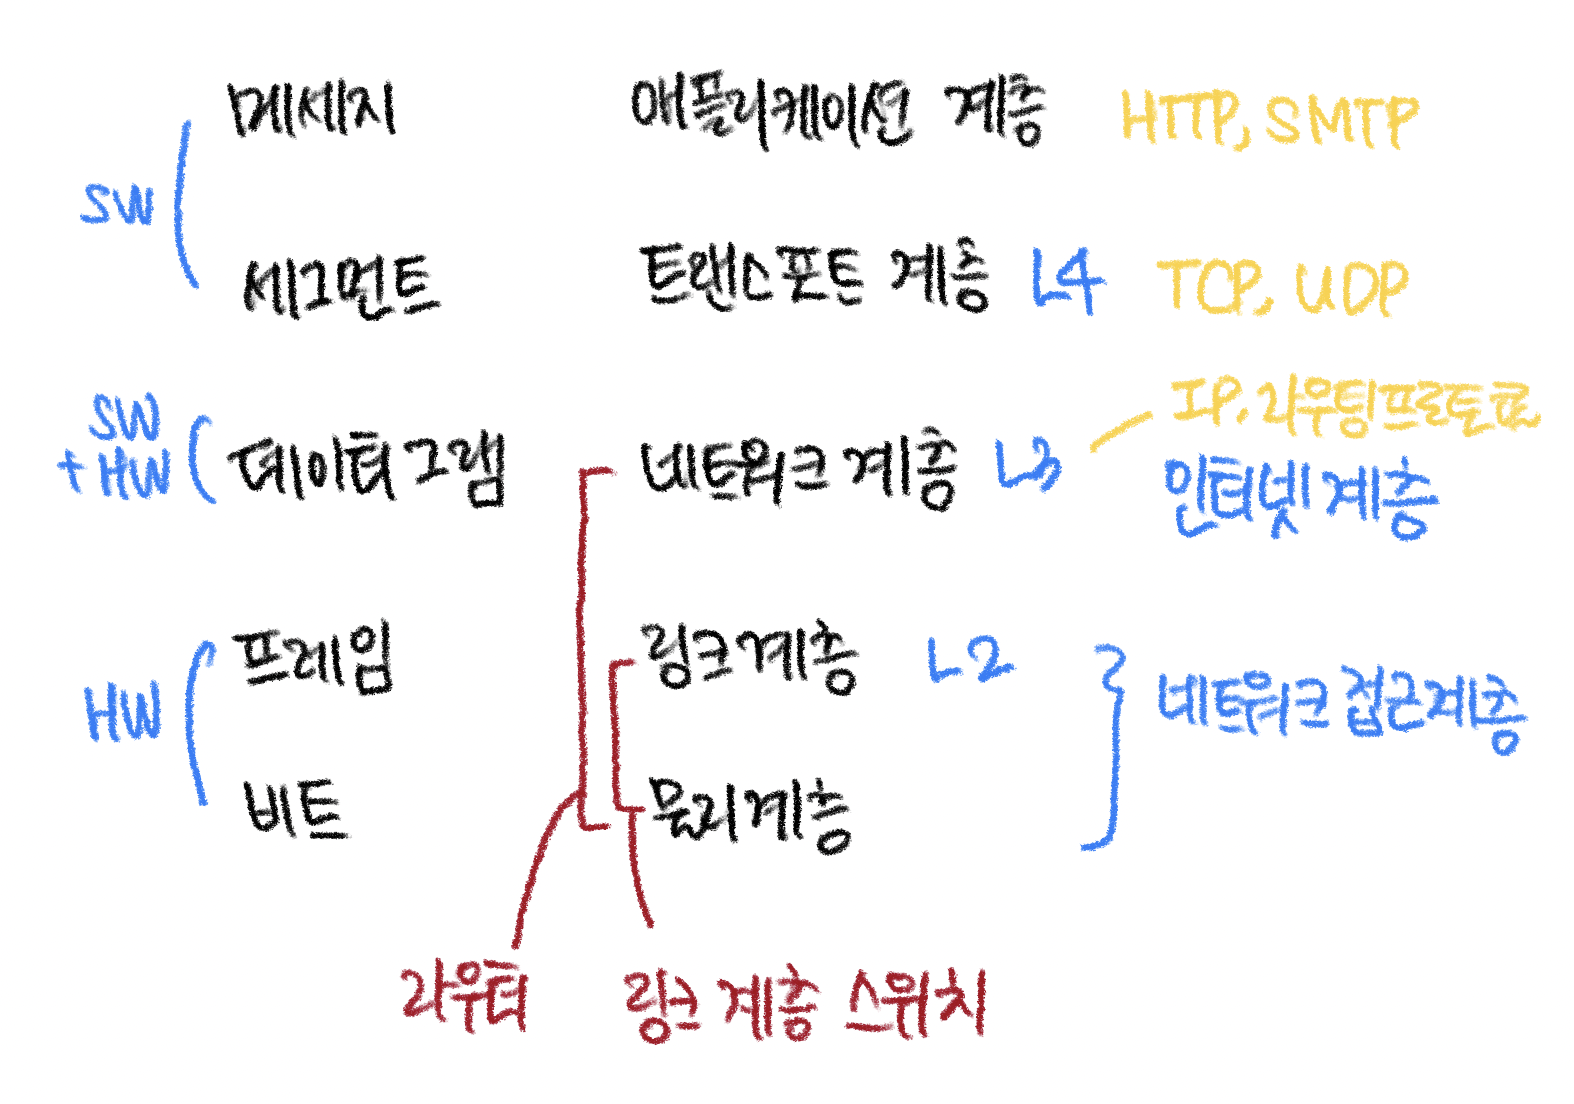 메세지 애플리케이션 계층 HTTP, SMTP
SW
세그먼트 트랜스포트 계층 L4 TCP, UDP
SW
+ HW
데이터그램 네트워크 계층 L3
IP, 라우팅프로토콜
인터넷 계층
프레임 링크계층 L2
HW
네트워크 접근계층
비트 물리계층
라우터 링크 계층 스위치